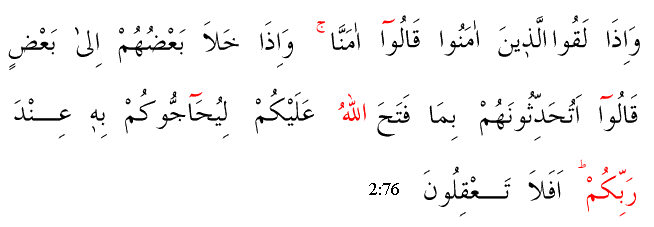 وَاِذَا لَقُوا الَّذٖينَ اٰمَنُوا قَالُٓوا اٰمَنَّاۚ وَاِذَا خَلَا بَعْضُهُمْ اِلٰى بَعْضٍ
قَالُٓوا اَتُحَدِّثُونَهُمْ بِمَا فَتَحَ اللّٰهُ عَلَيْكُمْ لِيُحَٓاجُّوكُمْ بِهٖ عِنْدَ
رَبِّكُمْؕ اَفَلَا تَعْقِلُونَ 2:76